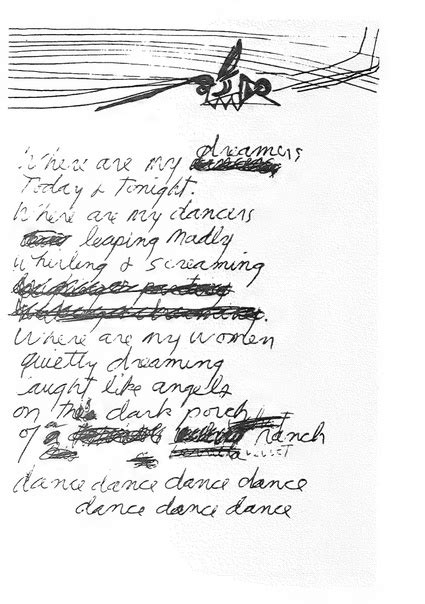 Where are my dreamers
Today & tonight.
Where are my dancers
leaping madly
whirling & screaming
Where are my women
quietly dreaming
caught like angels
on the dark porch
of a velvet ranch
dance dance dance dance
dance dance dance